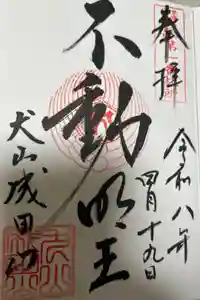 奉拝
令和八年
四月十九日
不動明王
犬山成田山